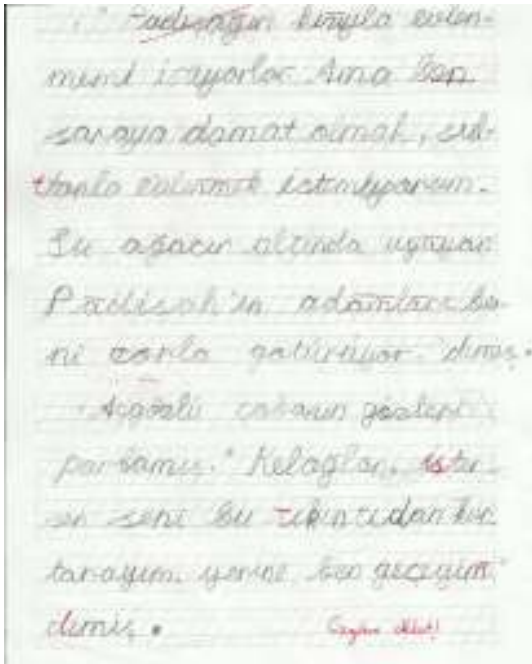 " Padişağın kızıyla evlen-
memi istiyorlar. Ama ben
saraya damat olmak, sul-
tanla evlenmek istemiyorum.
Bu ağacın altında uyuyan
Padişah'ın adamları be-
ni zorla götürüyor" demiş.
Açgözlü çobanın gözleri
parlamış. " Keloğlan, ister-
sen seni bu sıkıntıdan kur-
tarayım. yerine ben geçeyim"
demiş.